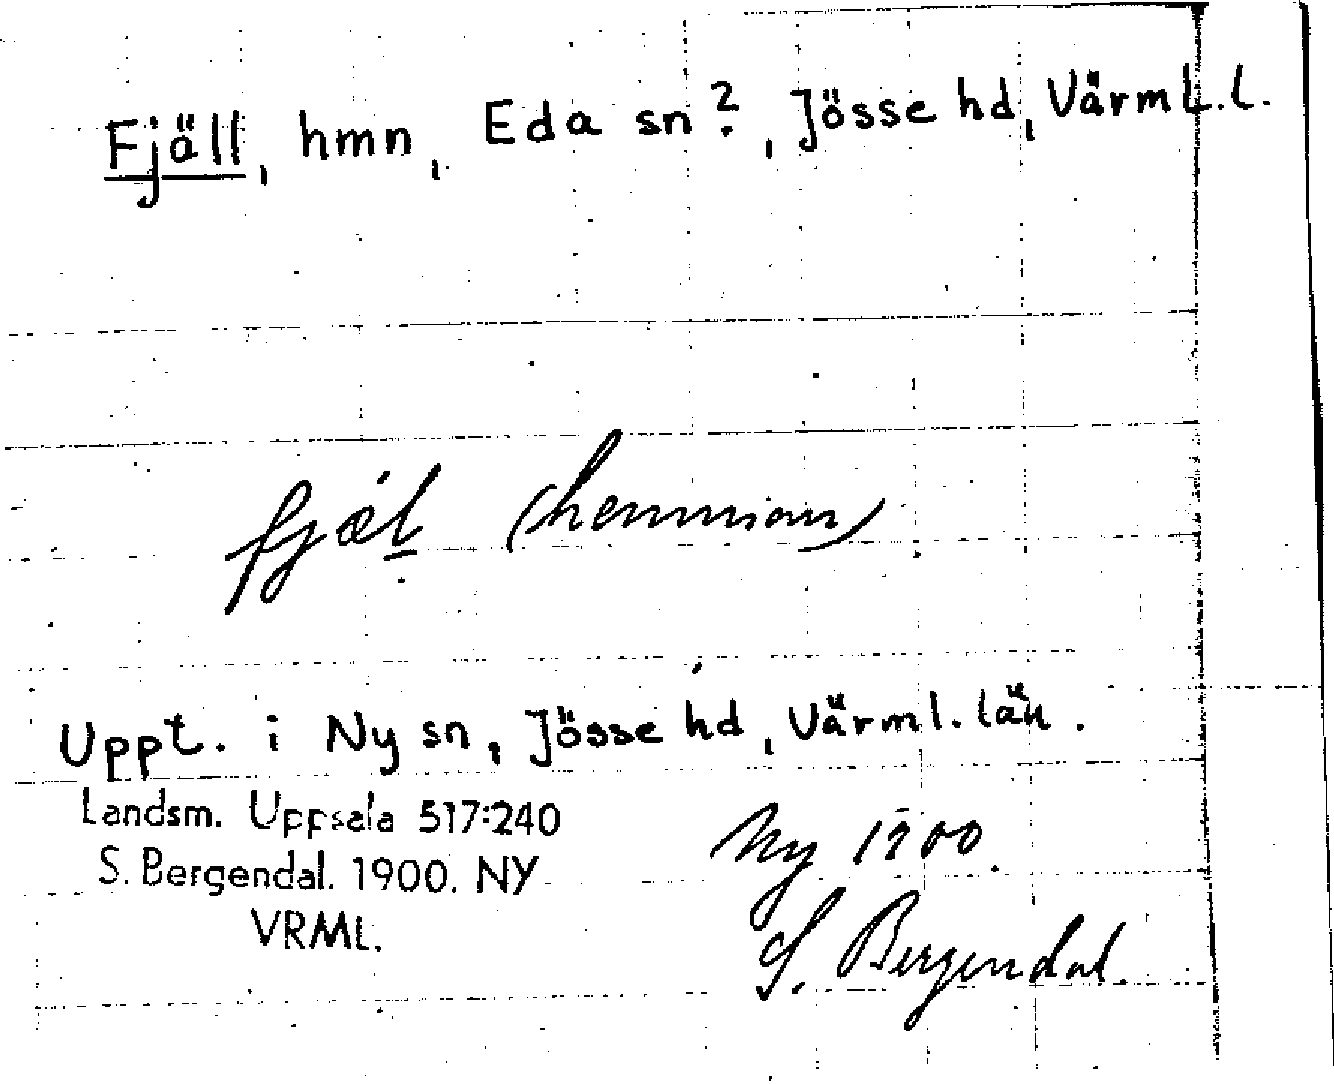 Fjäll, hmn, Eda sn?, Jösse hd, Värml.l.
fjæl (hemman)
Uppt. i Ny sn, Jösse hd, Värml. län.
Landsm. Uppsala 517:240
S. Bergendal. 1900. NY
VRML.
Ny 1900.
S. Bergendal.